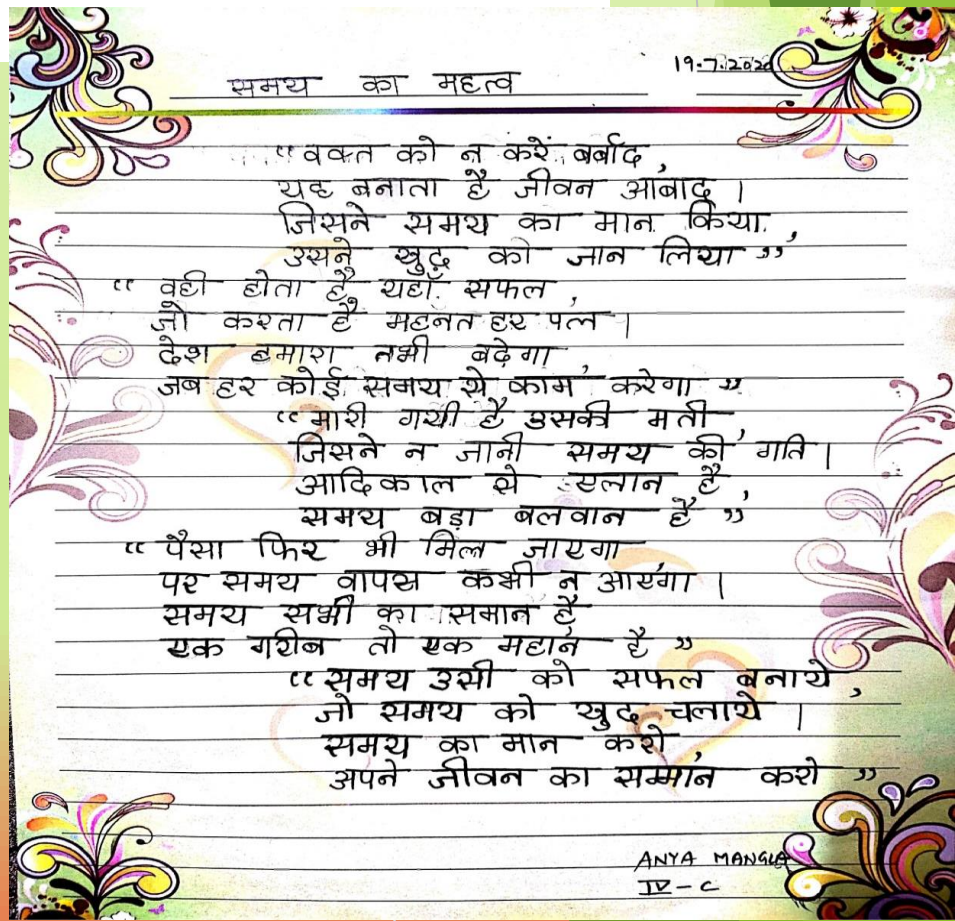 19.7.2020
समय का महत्व
“वक्त को न करें बर्बाद,
यह बनाता है जीवन आबाद।
जिसने समय का मान किया,
उसने खुद को जान लिया”
“वही होता है यहाँ सफल,
जो करता है महनत हर पल।
देश हमारा तभी बढ़ेगा,
जब हर कोई समय से काम करेगा”
“मारी गयी है उसकी मती,
जिसने न जानी समय की गति।
आदिकाल से एलान है,
समय बड़ा बलवान है”
“पैसा फिर भी मिल जाएगा
पर समय वापस कभी न आएगा।
समय सभी का समान है,
एक गरीब तो एक महान है”
“समय उसी को सफल बनाये,
जो समय को खुद चलाये।
समय का मान करो,
अपने जीवन का सम्मान करो”
ANYA MANGLA
IV-C